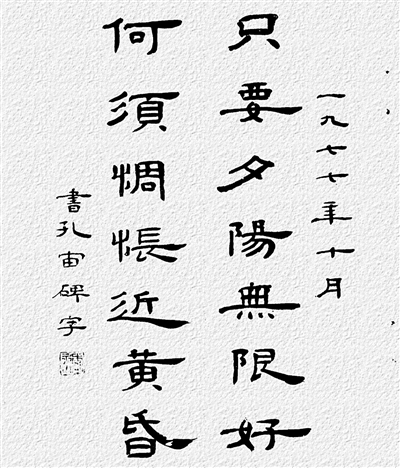 一九七七年十月
只要夕陽無限好
何須惆悵近黄昏
書孔宙碑字